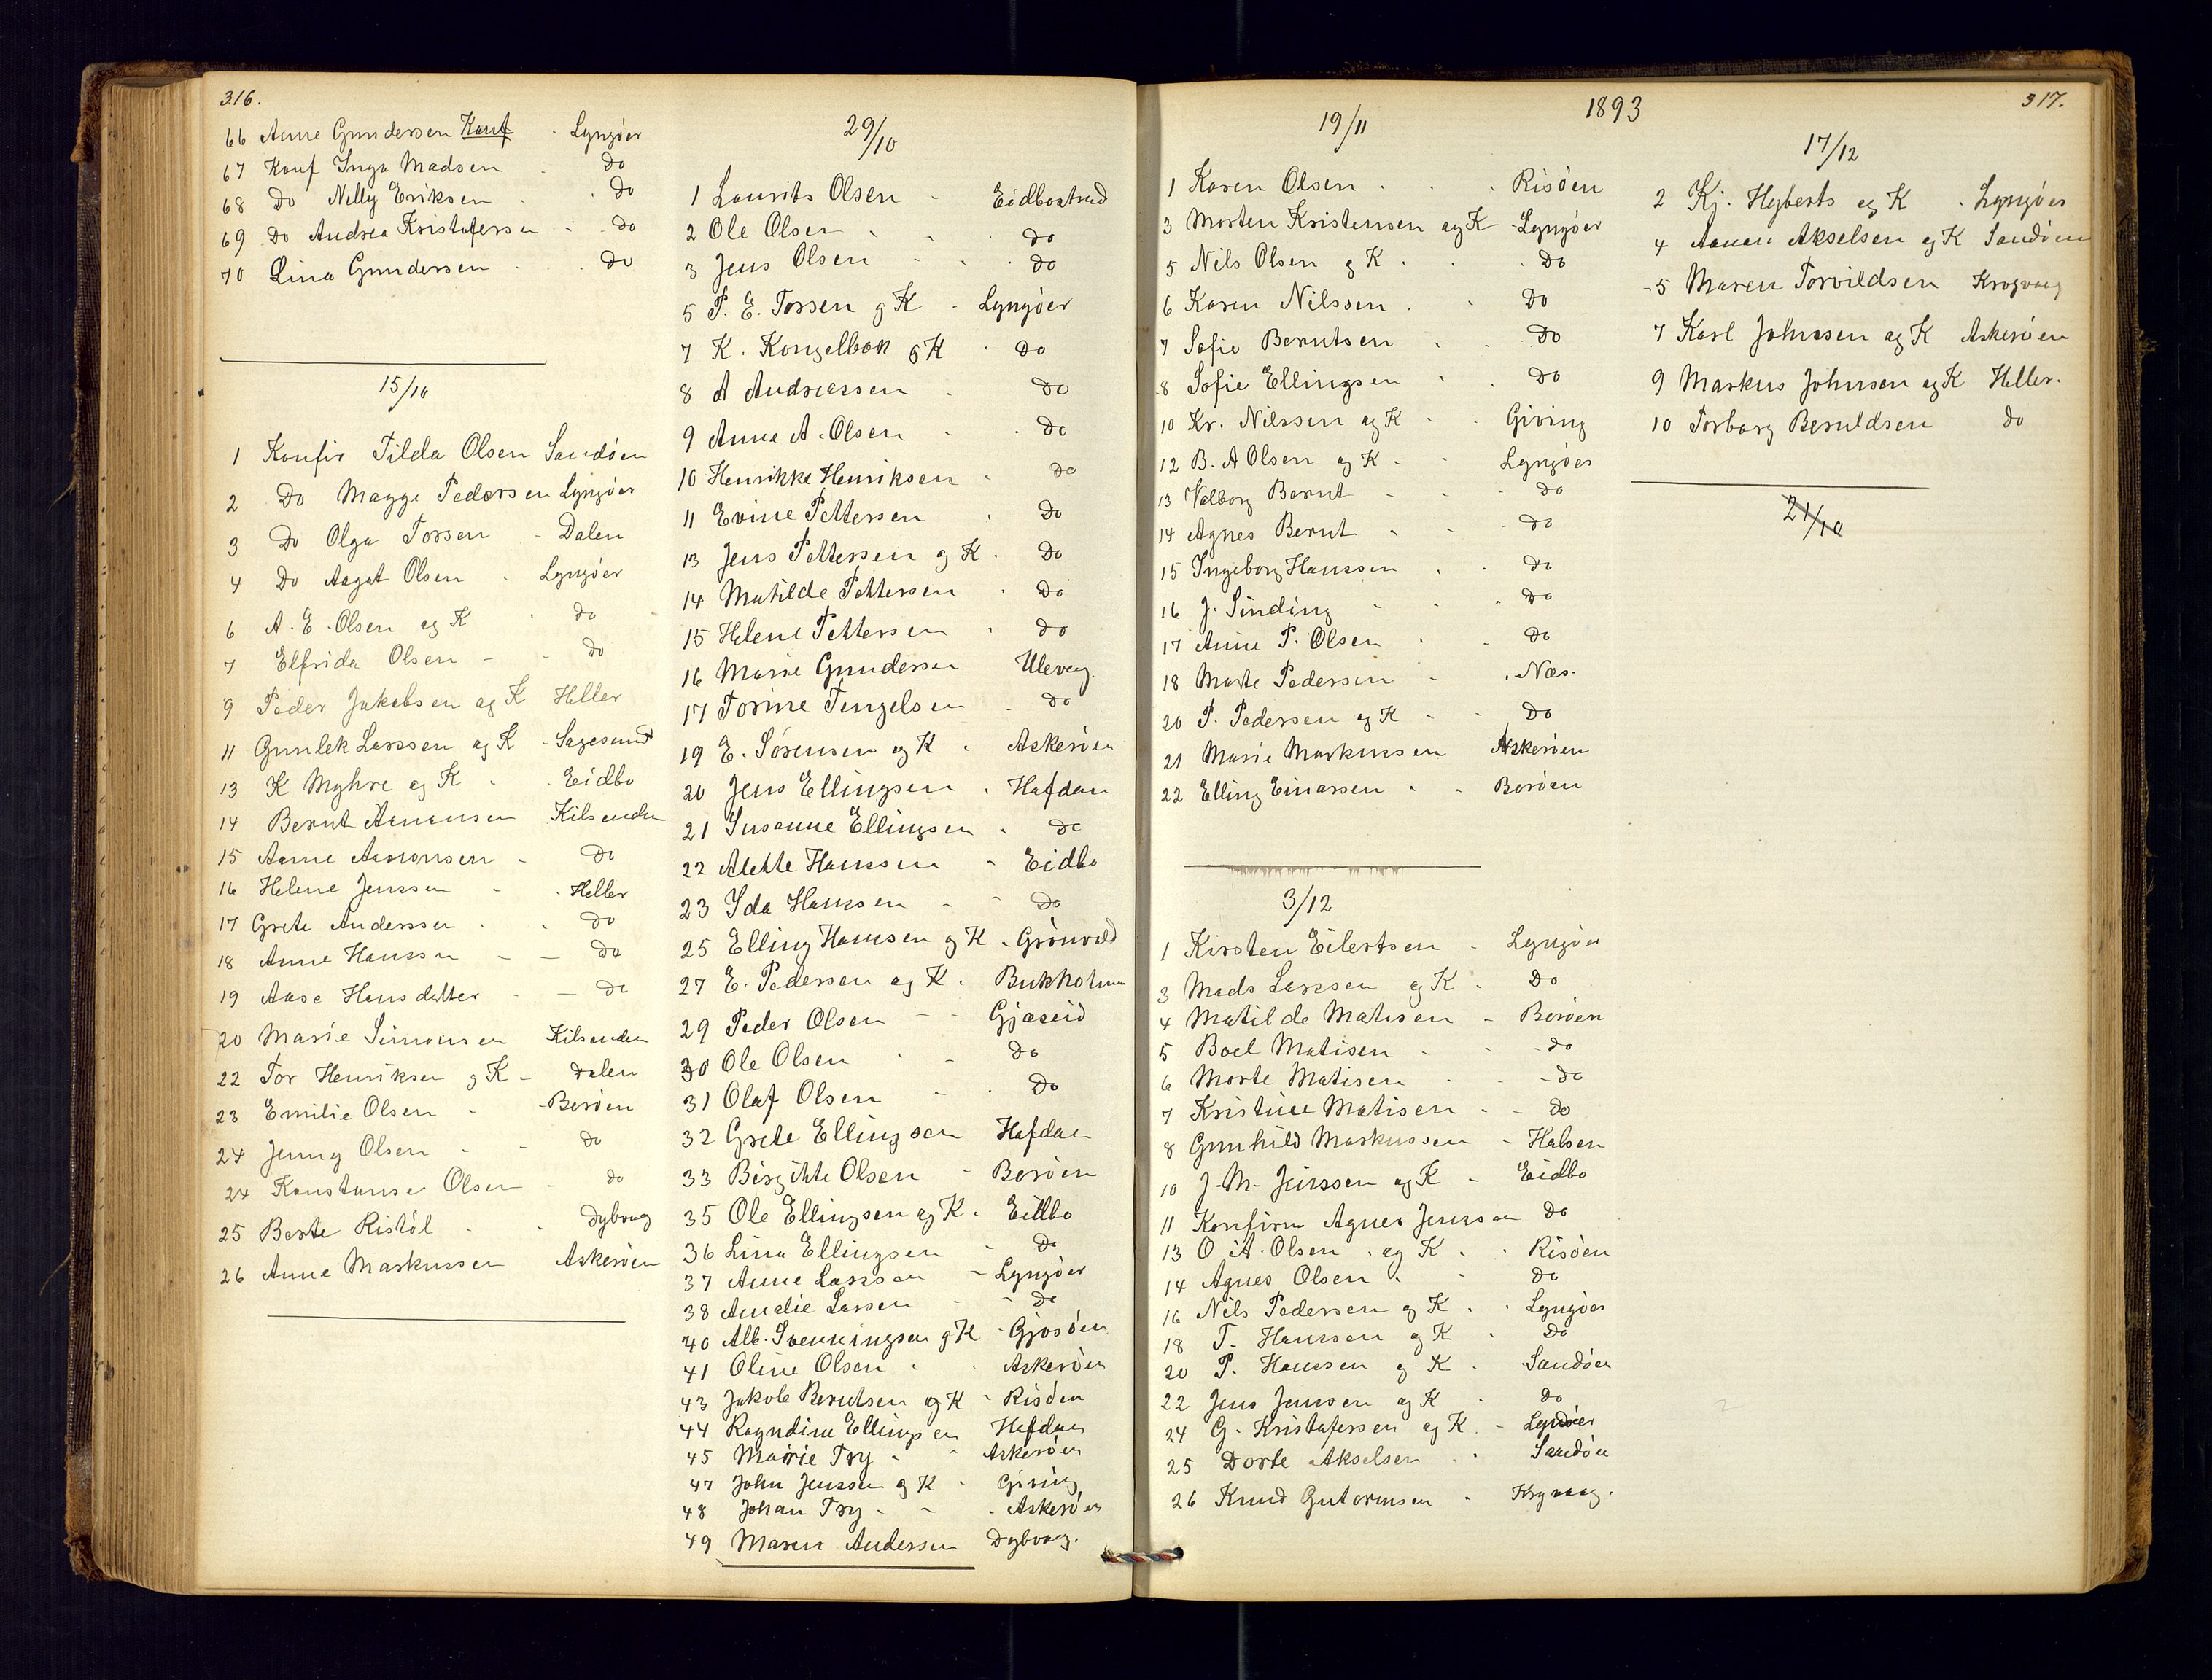 316.
66 Anne Gundersen Konf - Lyngöer
67 Konf Inga Madsen Do
68 Do Nelly Eriksen Do
69 Do Andrea Kristofersen Do
70 Lina Gundersen Do
15/10
1 Konfir Tilda Olsen Sandöen
2 Do Magge Pedersen Lyngöer
3 Do Olga Torsen - Dalen
4 Do Aagot Olsen Lyngöer
6 A. E. Olsen og K do
7 Elfrida Olsen - - do
9 Peder Jakobsen og K Heller
11 Gunlek Larssen og K - Sagesund
13 K Myhre og K - Eidbo
14 Bernt Aanonsen Kilsenden
15 Anne Aanonsen - Do
16 Helene Jenssen - - Heller
17 Grete Anderssen - Do
18 Anne Hanssen - - Do
19 Aase Hansdatter - - do
20 Marie Simonsen Kilsenden
22 Tor Henriksen og K - Dalen
23 Emilie Olsen - - Boröen
24 Jenny Olsen - - do
24 Konstanse Olsen - do
25 Berte Ristöl - - Dybvaag
26 Anne Markussen Askeröen
29/10
1 Laurits Olsen - Eidbostrand
2 Ole Olsen - - do
3 Jens Olsen - - do
5 P. E. Torsen og K - Lyngöer
7 K. Kongelbok og K - Do
8 A Andreassen - Do
9 Anne A. Olsen - - Do
10 Henrikke Henriksen - do
11 Evine Pettersen - Do
13 Jens Pettersen og K. Do
14 Matilde Pettersen - Do
15 Helene Pettersen - do
16 Marie Gundersen Ulevaag.
17 Torine Tengelsen - do
19 E. Sörensen og K - Askeröen
20 Jens Ellingsen - Hafdan
21 Susanne Ellingsen - do
22 Alette Hanssen - Eidbo
23 Ida Hanssen - - Do
25 Elling Hansen og K - Grönvold
27 E. Pedersen og K. Bukholmen
29 Peder Olsen - - Gjaseid
30 Ole Olsen - - do
31 Olaf Olsen - - Do
32 Grete Ellingsen Hafdan
33 Birgitte Olsen - Boröen
35 Ole Ellingsen og K. Eidbo
36 Lina Ellingsen - Do
37 Anne Larssen - Lyngöer
38 Amalie Larsen - - do
40 Alb. Svenningsen og K - Gjosöen
41 Oline Olsen - - Askeröen
43 Jakob Berntsen og K - Risöen
44 Ragndine Ellingsen Hafdan
45 Marie Try - - Askeröen
47 John Jenssen og K - Giving
48 Johan Try - - - Askeröen
49 Maren Andersen Dybvaag.
1893
317.
19/11
1 Karen Olsen - - - Risöen
3 Morten Kristensen og K - Lyngöer
5 Nils Olsen og K - - Do
6 Karen Nilssen - - Do
7 Sofie Berntsen - - Do
8 Sofie Ellingsen - - Do
10 Kr. Nilssen og K - - Giving
12 B. A Olsen og K - - Lyngöer
13 Valborg Bernt - - Do
14 Agnes Bernt - - do
15 Ingeborg Hanssen - - do
16 J. Sinding - - - Do
17 Anne P. Olsen - - Do
18 Marte Pedersen - - Næs.
20 P. Pedersen og K - - Do
21 Marie Markussen Askeröen
22 Elling Einarsen - - Boröen
3/12
1 Kirsten Eilertsen - Lyngöer
3 Mads Larssen og K - Do
4 Matilde Matisen - Boröen
5 Boel Matisen - - - do
6 Morte Matisen - - do
7 Kristine Matisen - - do
8 Gunhild Markussen - Halsen
10 J. M. Jenssen og K - Eidbo
11 Konfirm Agnes Jenssen Do
13 O. A. Olsen - og K - - Risöen
14 Agnes Olsen - - do
16 Nils Pedersen og K - - Lyngöer
18 T. Hanssen og K - Do
20 P. Hanssen og K - Sandöen
22 Jens Jenssen og K - do
24 G. Kristofersen og K. - Lyngöer
25 Dorte Akselsen - - Sandöen
26 Knud Gutormsen - Krogvaag.
17/12
2 Kj. Hyberts og K - Lyngöer
4 Aanen Akselsen og K Sandöen
5 Maren Torvildsen Krogvaag
7 Karl Johnsen og K Askeröen
9 Markus Johnsen og K Heller.
10 Torborg Beruldsen do
21/10